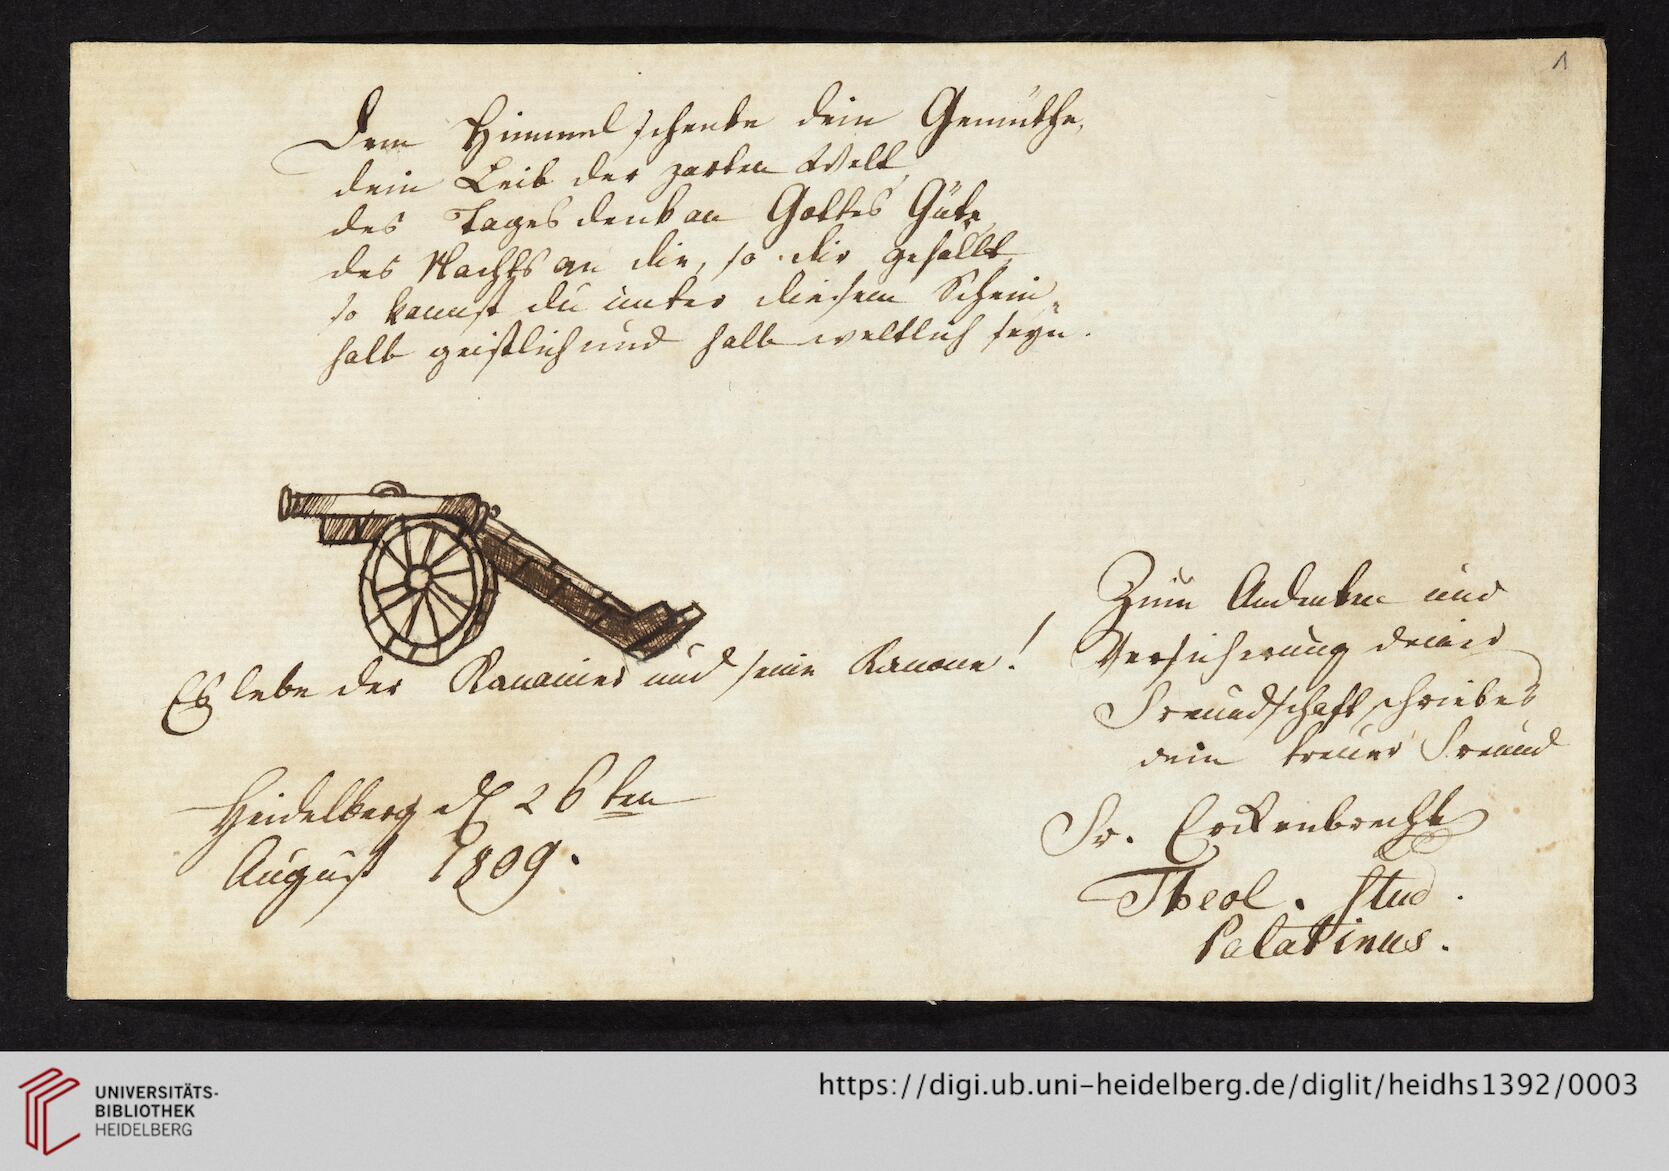 1
Dem Himmel schenke dein Gemüthe,
dein Leib der zarten Welt,
des Tages denk an Gottes Güte
des Nachts an die, so dir gefällt,
so kannst du unter diesem Schein,
halb geistlich und halb weltlich seyn.
Es lebe der Kanonier und seine Kanone!
Heidelberg d 26ten
August 1809.
Zum Andenken und
Versicherung deiner
Freundschaft schriebes
dein treuer Freund
Fr. Erckenbrecht
Theol. stud.
Palatinus.
UNIVERSITÄTS-
BIBLIOTHEK
HEIDELBERG
https://digi.ub.uni-heidelberg.de/diglit/heidhs1392/0003